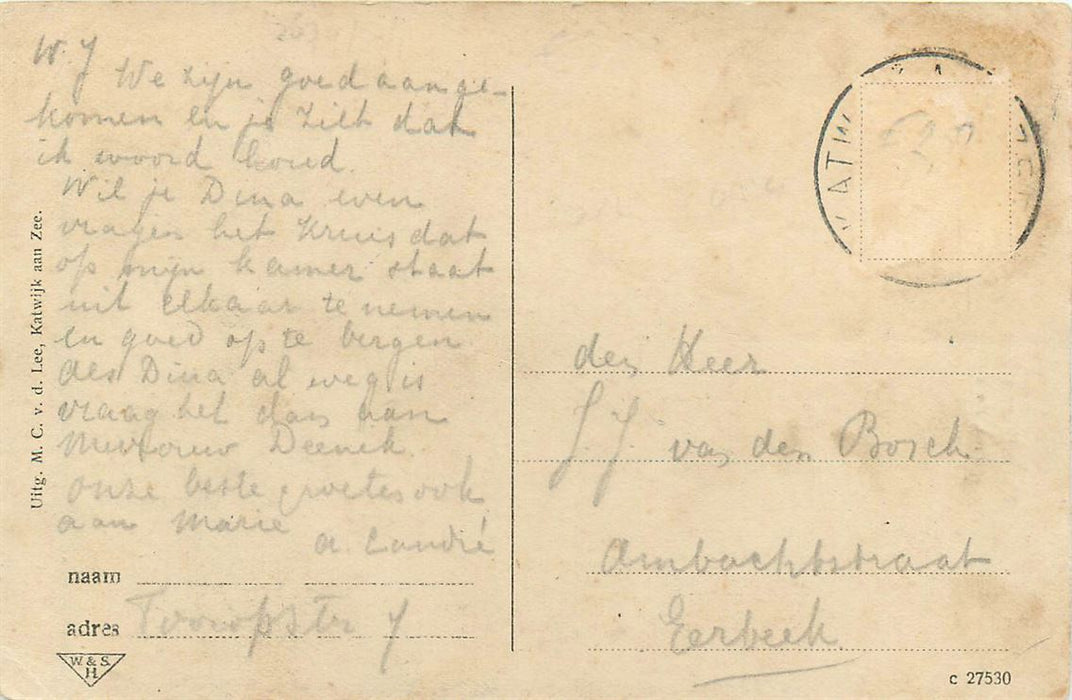 W. J
We zijn goed aange-
komen en je ziet dat
ik woord houd.
Wil je Dina even
vragen het Kruis dat
op mijn kamer staat
uit elkaar te nemen
en goed op te bergen
als Dina al weg is
vraag het dan aan
Mevrouw Deenik.
onze beste groeten ook
aan Marie
a. Landré
naam
adres Tooropstr 7
W. & S.
H
Uitg. M. C. v. d. Lee, Katwijk aan Zee.
KATW ZEE
den Heer
J. J. van den Bosch.
Ambachtstraat
Eerbeek.
c 27530